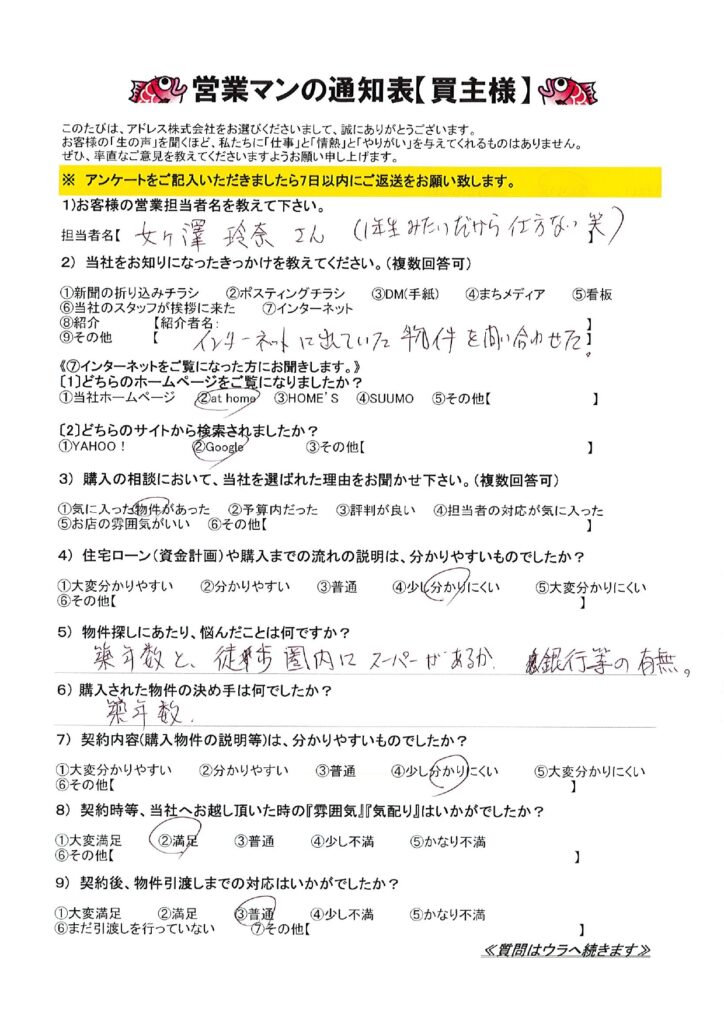 営業マンの通知表【買主様】
このたびは、アドレス株式会社をお選びくださいまして、誠にありがとうございます。
お客様の「生の声」を聞くほど、私たちに「仕事」と「情熱」と「やりがい」を与えてくれるものはありません。
ぜひ、率直なご意見を教えてくださいますようお願い申し上げます。
※ アンケートをご記入いただきましたら7日以内にご返送をお願い致します。
1)お客様の営業担当者名を教えて下さい。
担当者名【 女ヶ澤 玲奈 さん (1年生みたいだから仕方ない 笑) 】
2) 当社をお知りになったきっかけを教えてください。(複数回答可)
①新聞の折り込みチラシ ②ポスティングチラシ ③DM(手紙) ④まちメディア ⑤看板
⑥当社のスタッフが挨拶に来た ⑦インターネット
⑧紹介 【紹介者名: 】
⑨その他 【 インターネットに出ていた物件を問い合わせた。 】
《⑦インターネットをご覧になった方にお聞きします。》
〔1〕どちらのホームページをご覧になりましたか?
①当社ホームページ ②at home ③HOME'S ④SUUMO ⑤その他【 】
〔2〕どちらのサイトから検索されましたか?
①YAHOO! ②Google ③その他【 】
3) 購入の相談において、当社を選ばれた理由をお聞かせ下さい。(複数回答可)
①気に入った物件があった ②予算内だった ③評判が良い ④担当者の対応が気に入った
⑤お店の雰囲気がいい ⑥その他【 】
4) 住宅ローン(資金計画)や購入までの流れの説明は、分かりやすいものでしたか?
①大変分かりやすい ②分かりやすい ③普通 ④少し分かりにくい ⑤大変分かりにくい
⑥その他【 】
5) 物件探しにあたり、悩んだことは何ですか?
築年数と、徒歩圏内にスーパーがあるか 銀行等の有無。
6) 購入された物件の決め手は何でしたか?
築年数.
7) 契約内容(購入物件の説明等)は、分かりやすいものでしたか?
①大変分かりやすい ②分かりやすい ③普通 ④少し分かりにくい ⑤大変分かりにくい
⑥その他【 】
8) 契約時等、当社へお越し頂いた時の『雰囲気』『気配り』はいかがでしたか?
①大変満足 ②満足 ③普通 ④少し不満 ⑤かなり不満
⑥その他【 】
9) 契約後、物件引渡しまでの対応はいかがでしたか?
①大変満足 ②満足 ③普通 ④少し不満 ⑤かなり不満
⑥まだ引渡しを行っていない ⑦その他【 】
≪質問はウラへ続きます≫